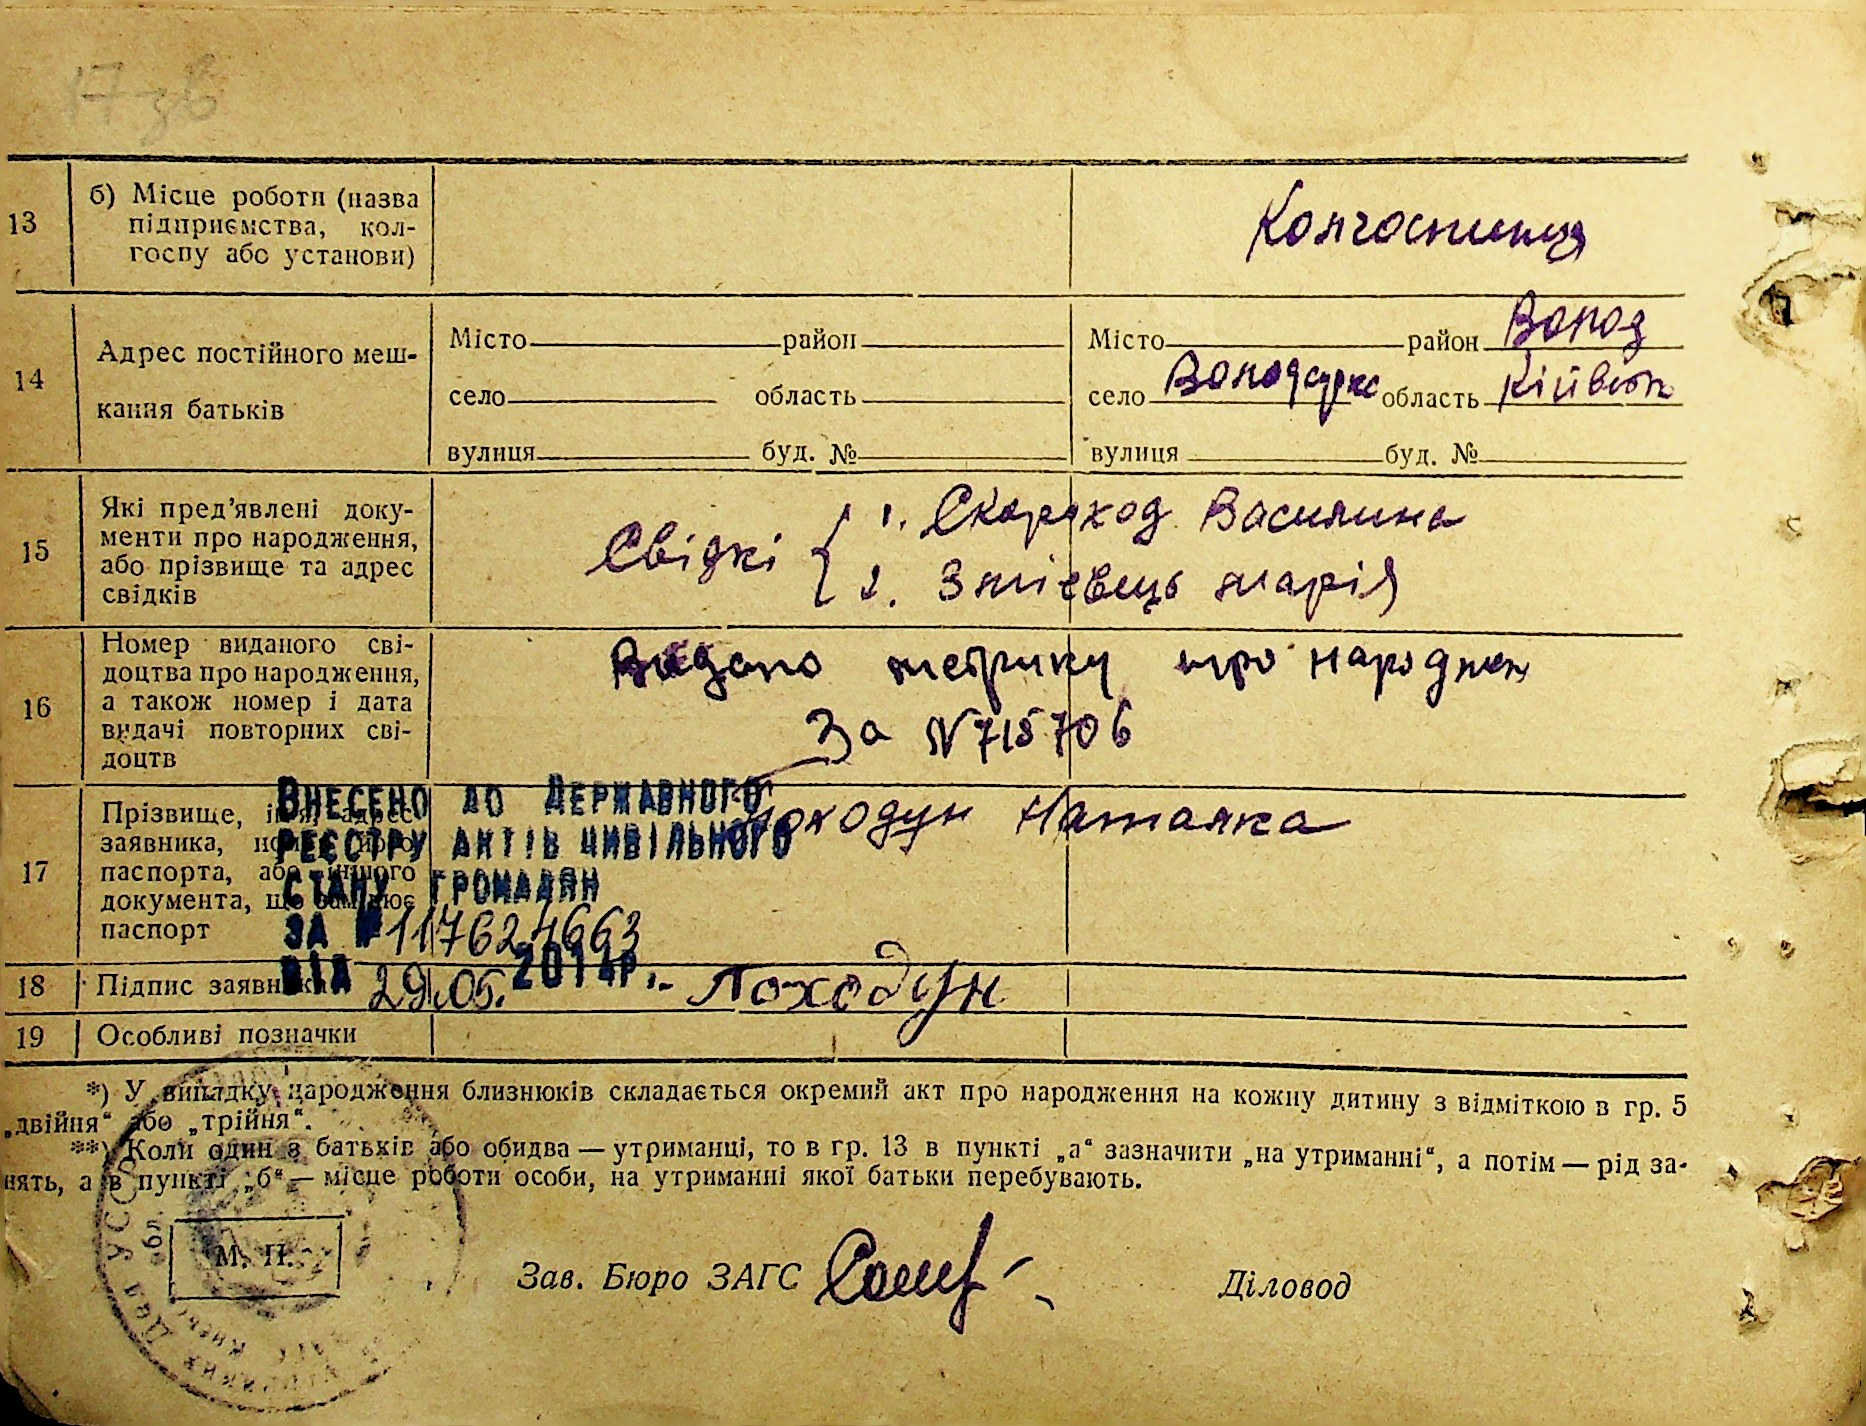 17 зв
13
б) Місце роботи (назва
підприємства, кол-
госпу або установи)
Колгоспниця
14
Адрес постійного меш-
кання батьків
Місто район
село область
вулиця буд. №
Місто район Волод
село Володарка область Київськ
вулиця буд. №
15
Які пред’явлені доку-
менти про народження,
або прізвище та адрес
свідків
Свідкі { 1. Скороход Василина
2. Змієвець Марія
16
Номер виданого сві-
доцтва про народження,
а також номер і дата
видачі повторних сві-
доцтв
Видано метрику про народжен
За N 715706
17
Прізвище, ім'я, адрес
заявника, номер його
паспорта, або іншого
документа, що заміняє
паспорт
Походун Наталка
ВНЕСЕНО ДО ДЕРЖАВНОГО
РЕЄСТРУ АКТІВ ЦИВІЛЬНОГО
СТАНУ ГРОМАДЯН
ЗА № 117624663
ВІД 29.05. 2014р.
18
Підпис заявника
Походун
19
Особливі позначки
*) У випадку народження близнюків складається окремий акт про народження на кожну дитину з відміткою в гр. 5
„двійня“ або „трійня“.
**) Коли один з батьків або обидва — утриманці, то в гр. 13 в пункті „а“ зазначити „на утриманні“, а потім — рід за-
нять, а в пункті „б“ — місце роботи особи, на утриманні якої батьки перебувають.
М. П.
Зав. Бюро ЗАГС
Діловод